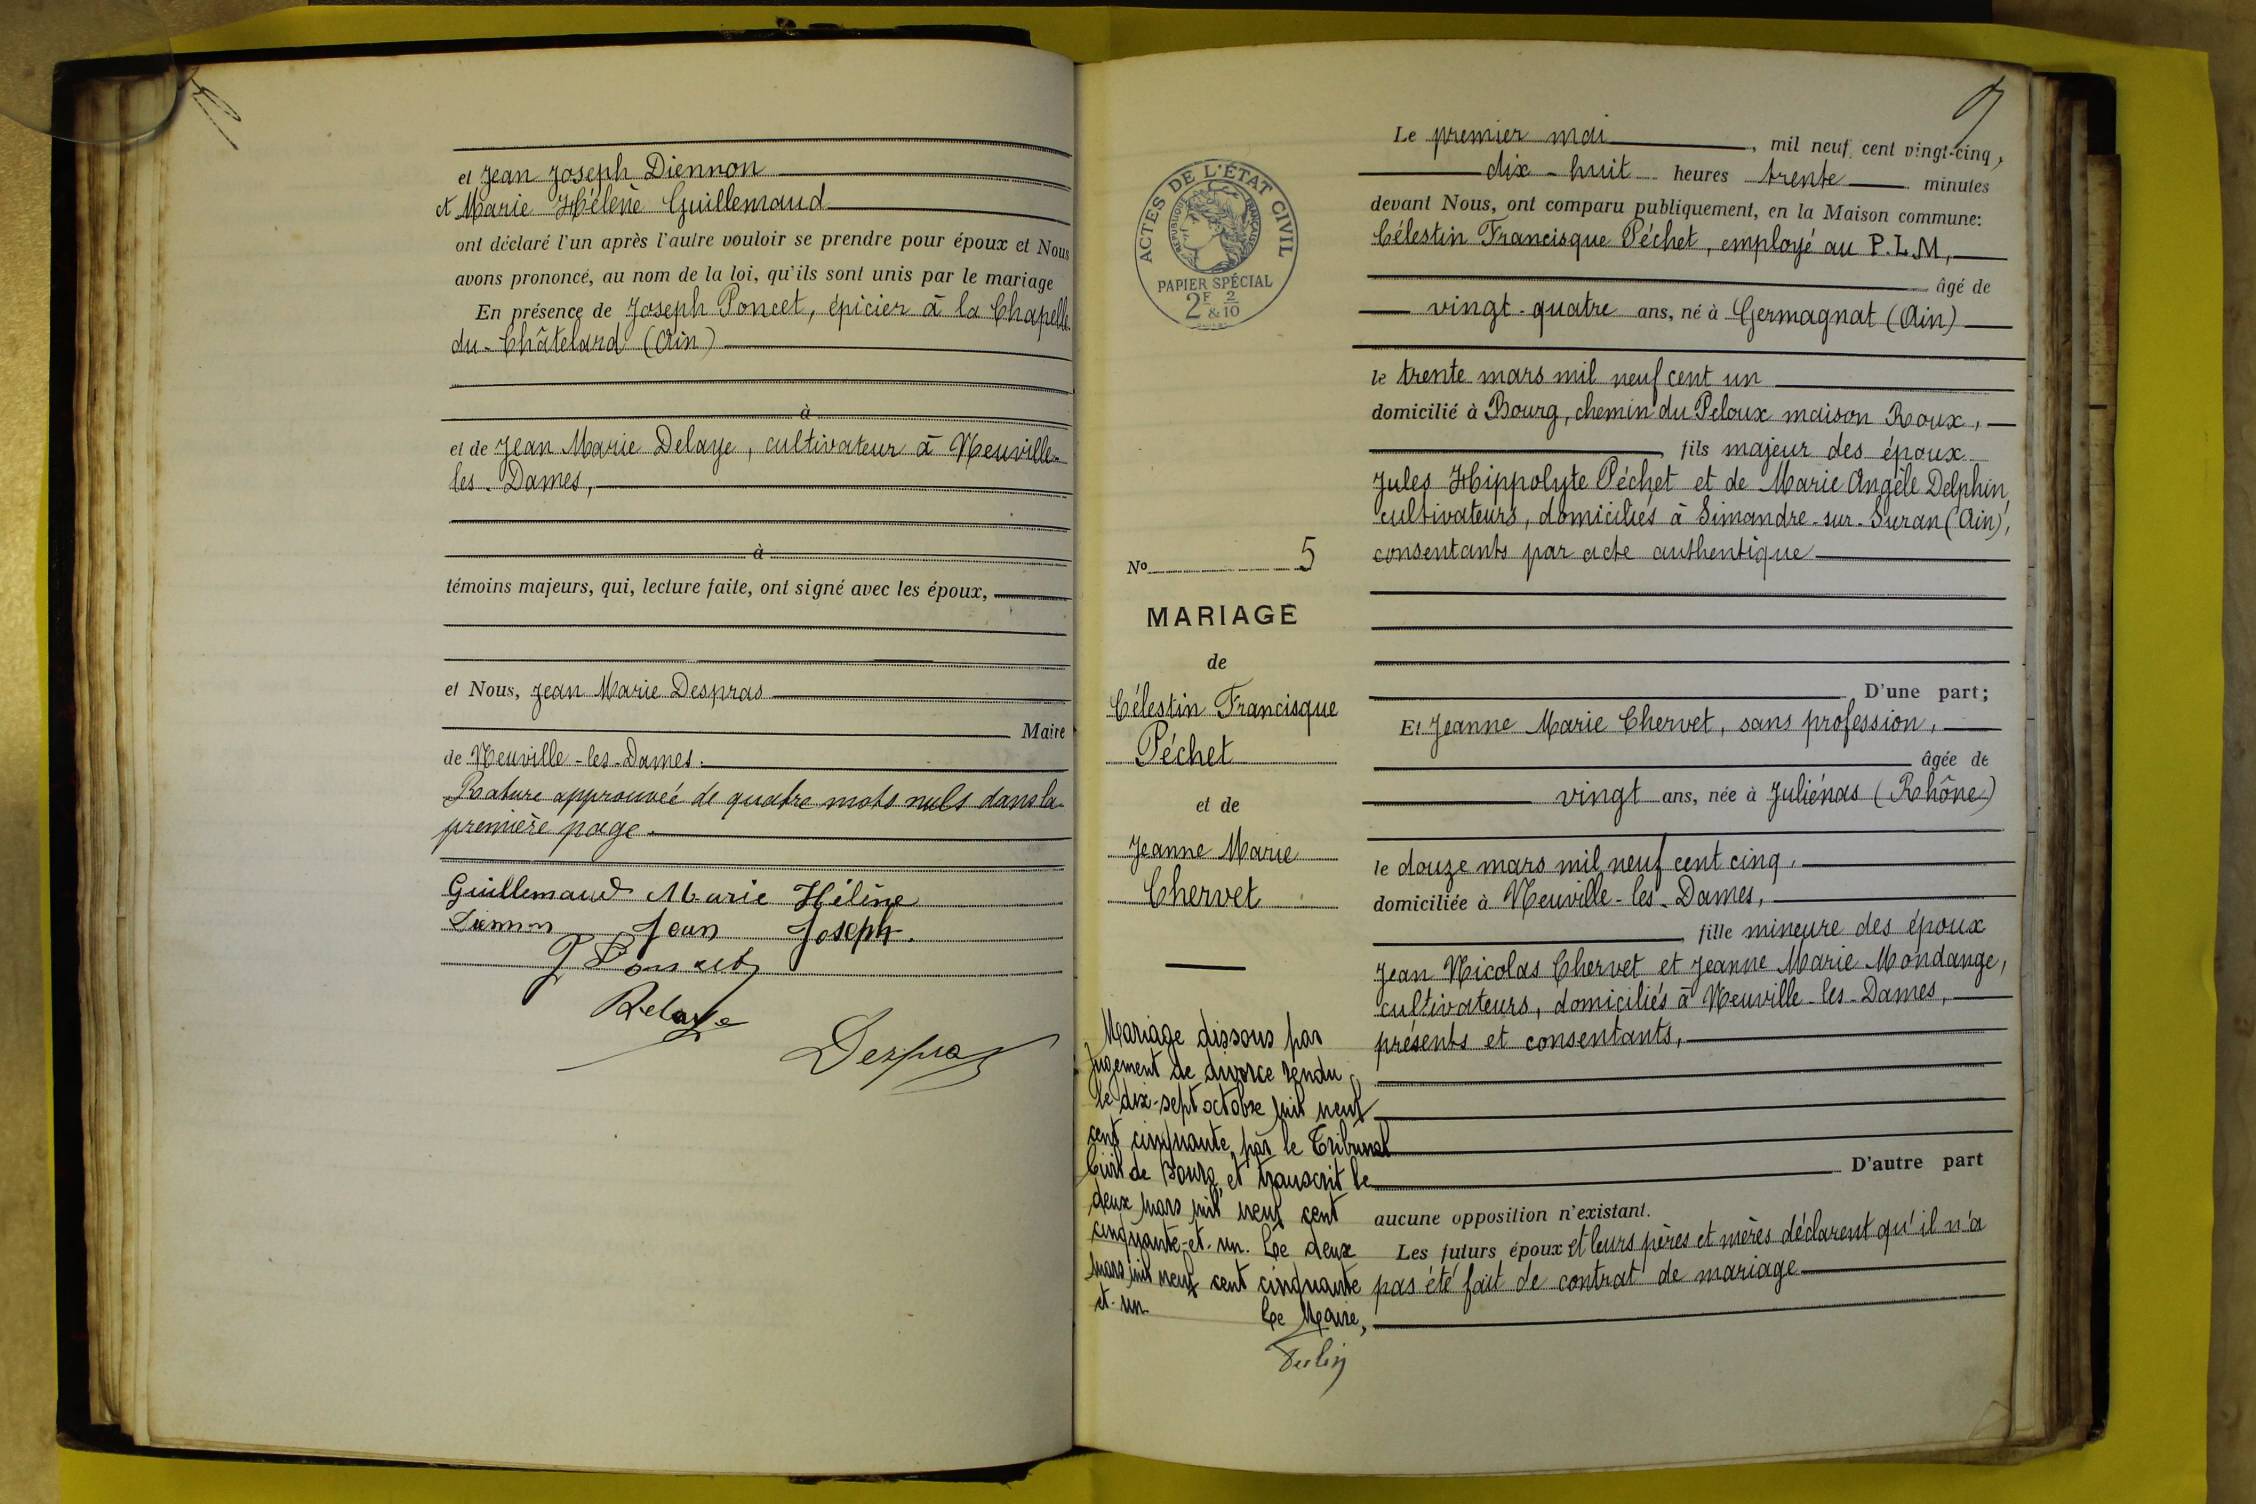 et Jean Joseph Diennon
et Marie Hélène Guillemaud
ont déclaré l'un après l'autre vouloir se prendre pour époux et Nous
avons prononcé, au nom de la loi, qu'ils sont unis par le mariage
En présence de Joseph Poncet, épicier à la Chapelle
du-Châtelard (Ain)
à
et de Jean Marie Delaye, cultivateur à Neuville-
les-Dames,
à
témoins majeurs, qui, lecture faite, ont signé avec les époux,
et Nous, Jean Marie Despras
Maire
de Neuville-les-Dames.
Rature approuvée de quatre mots nuls dans la
première page.
Guillemaud Marie Hélène
Diennon Jean Joseph.
J Poncet
Delaye
Despras
ACTES DE L'ÉTAT CIVIL
RÉPUBLIQUE FRANÇAISE
PAPIER SPÉCIAL
2F & 2/10
No 5
MARIAGE
de
Célestin Francisque
Péchet
et de
Jeanne Marie
Chervet
Mariage dissous par
Jugement de divorce rendu
le dix-sept octobre mil neuf
cent cinquante par le Tribunal
Civil de Bourg et transcrit le
deux mars mil neuf cent
cinquante-et-un. Le deux
mars mil neuf cent cinquante
et-un
Le Maire,
Le premier mai, mil neuf cent vingt-cinq,
dix-huit heures trente minutes
devant Nous, ont comparu publiquement, en la Maison commune:
Célestin Francisque Péchet, employé au P.L.M,
âgé de
vingt-quatre ans, né à Germagnat (Ain)
le trente mars mil neuf cent un
domicilié à Bourg, chemin du Peloux maison Roux,
fils majeur des époux
Jules Hippolyte Péchet et de Marie Angèle Delphin,
cultivateurs, domiciliés à Simandre-sur-Suran (Ain),
consentants par acte authentique
D'une part;
Et Jeanne Marie Chervet, sans profession,
âgée de
vingt ans, née à Juliénas (Rhône)
le douze mars mil neuf cent cinq,
domiciliée à Neuville-les-Dames,
fille mineure des époux
Jean Nicolas Chervet et Jeanne Marie Mondange,
cultivateurs, domiciliés à Neuville-les-Dames,
présents et consentants,
D'autre part
aucune opposition n'existant.
Les futurs époux et leurs pères et mères déclarent qu'il n'a
pas été fait de contrat de mariage